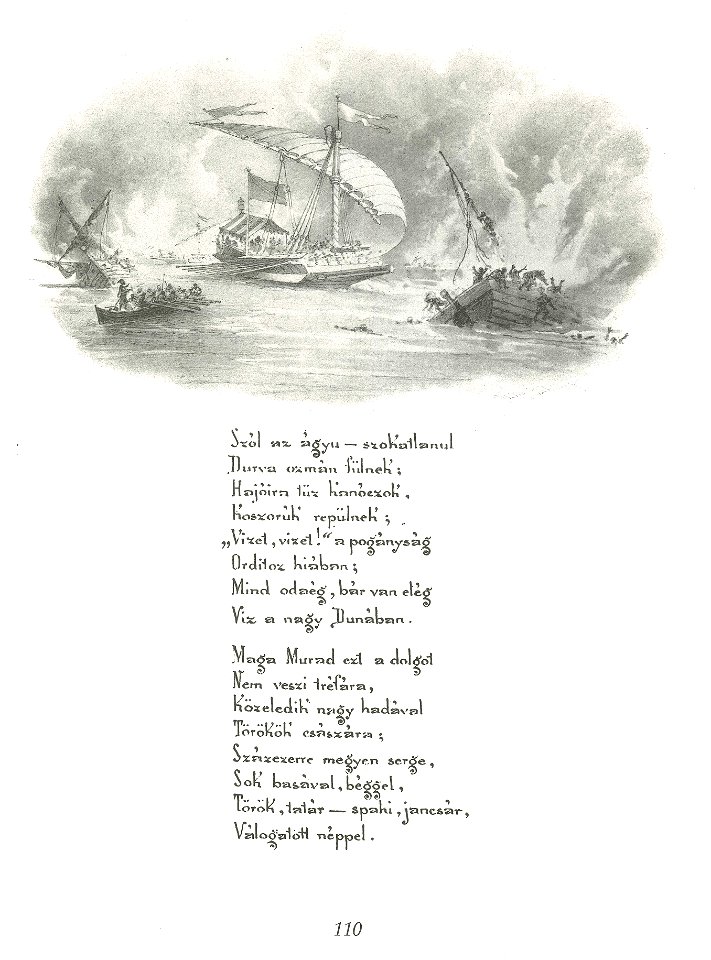 Szól az ágyu — szokatlanul
Durva ozmán fülnek;
Hajóira tüz kanóczok,
Koszorúk repülnek;
„Vizet, vizet!“ a pogányság
Orditoz hiában;
Mind odaég, bár van elég
Viz a nagy Dunában.
Maga Murad ezt a dolgot
Nem veszi tréfára,
Közeledik nagy hadával
Törökök császára;
Százezerre megyen serge,
Sok basával, béggel,
Török, tatár — spahi, jancsár,
Válogatott néppel.
110